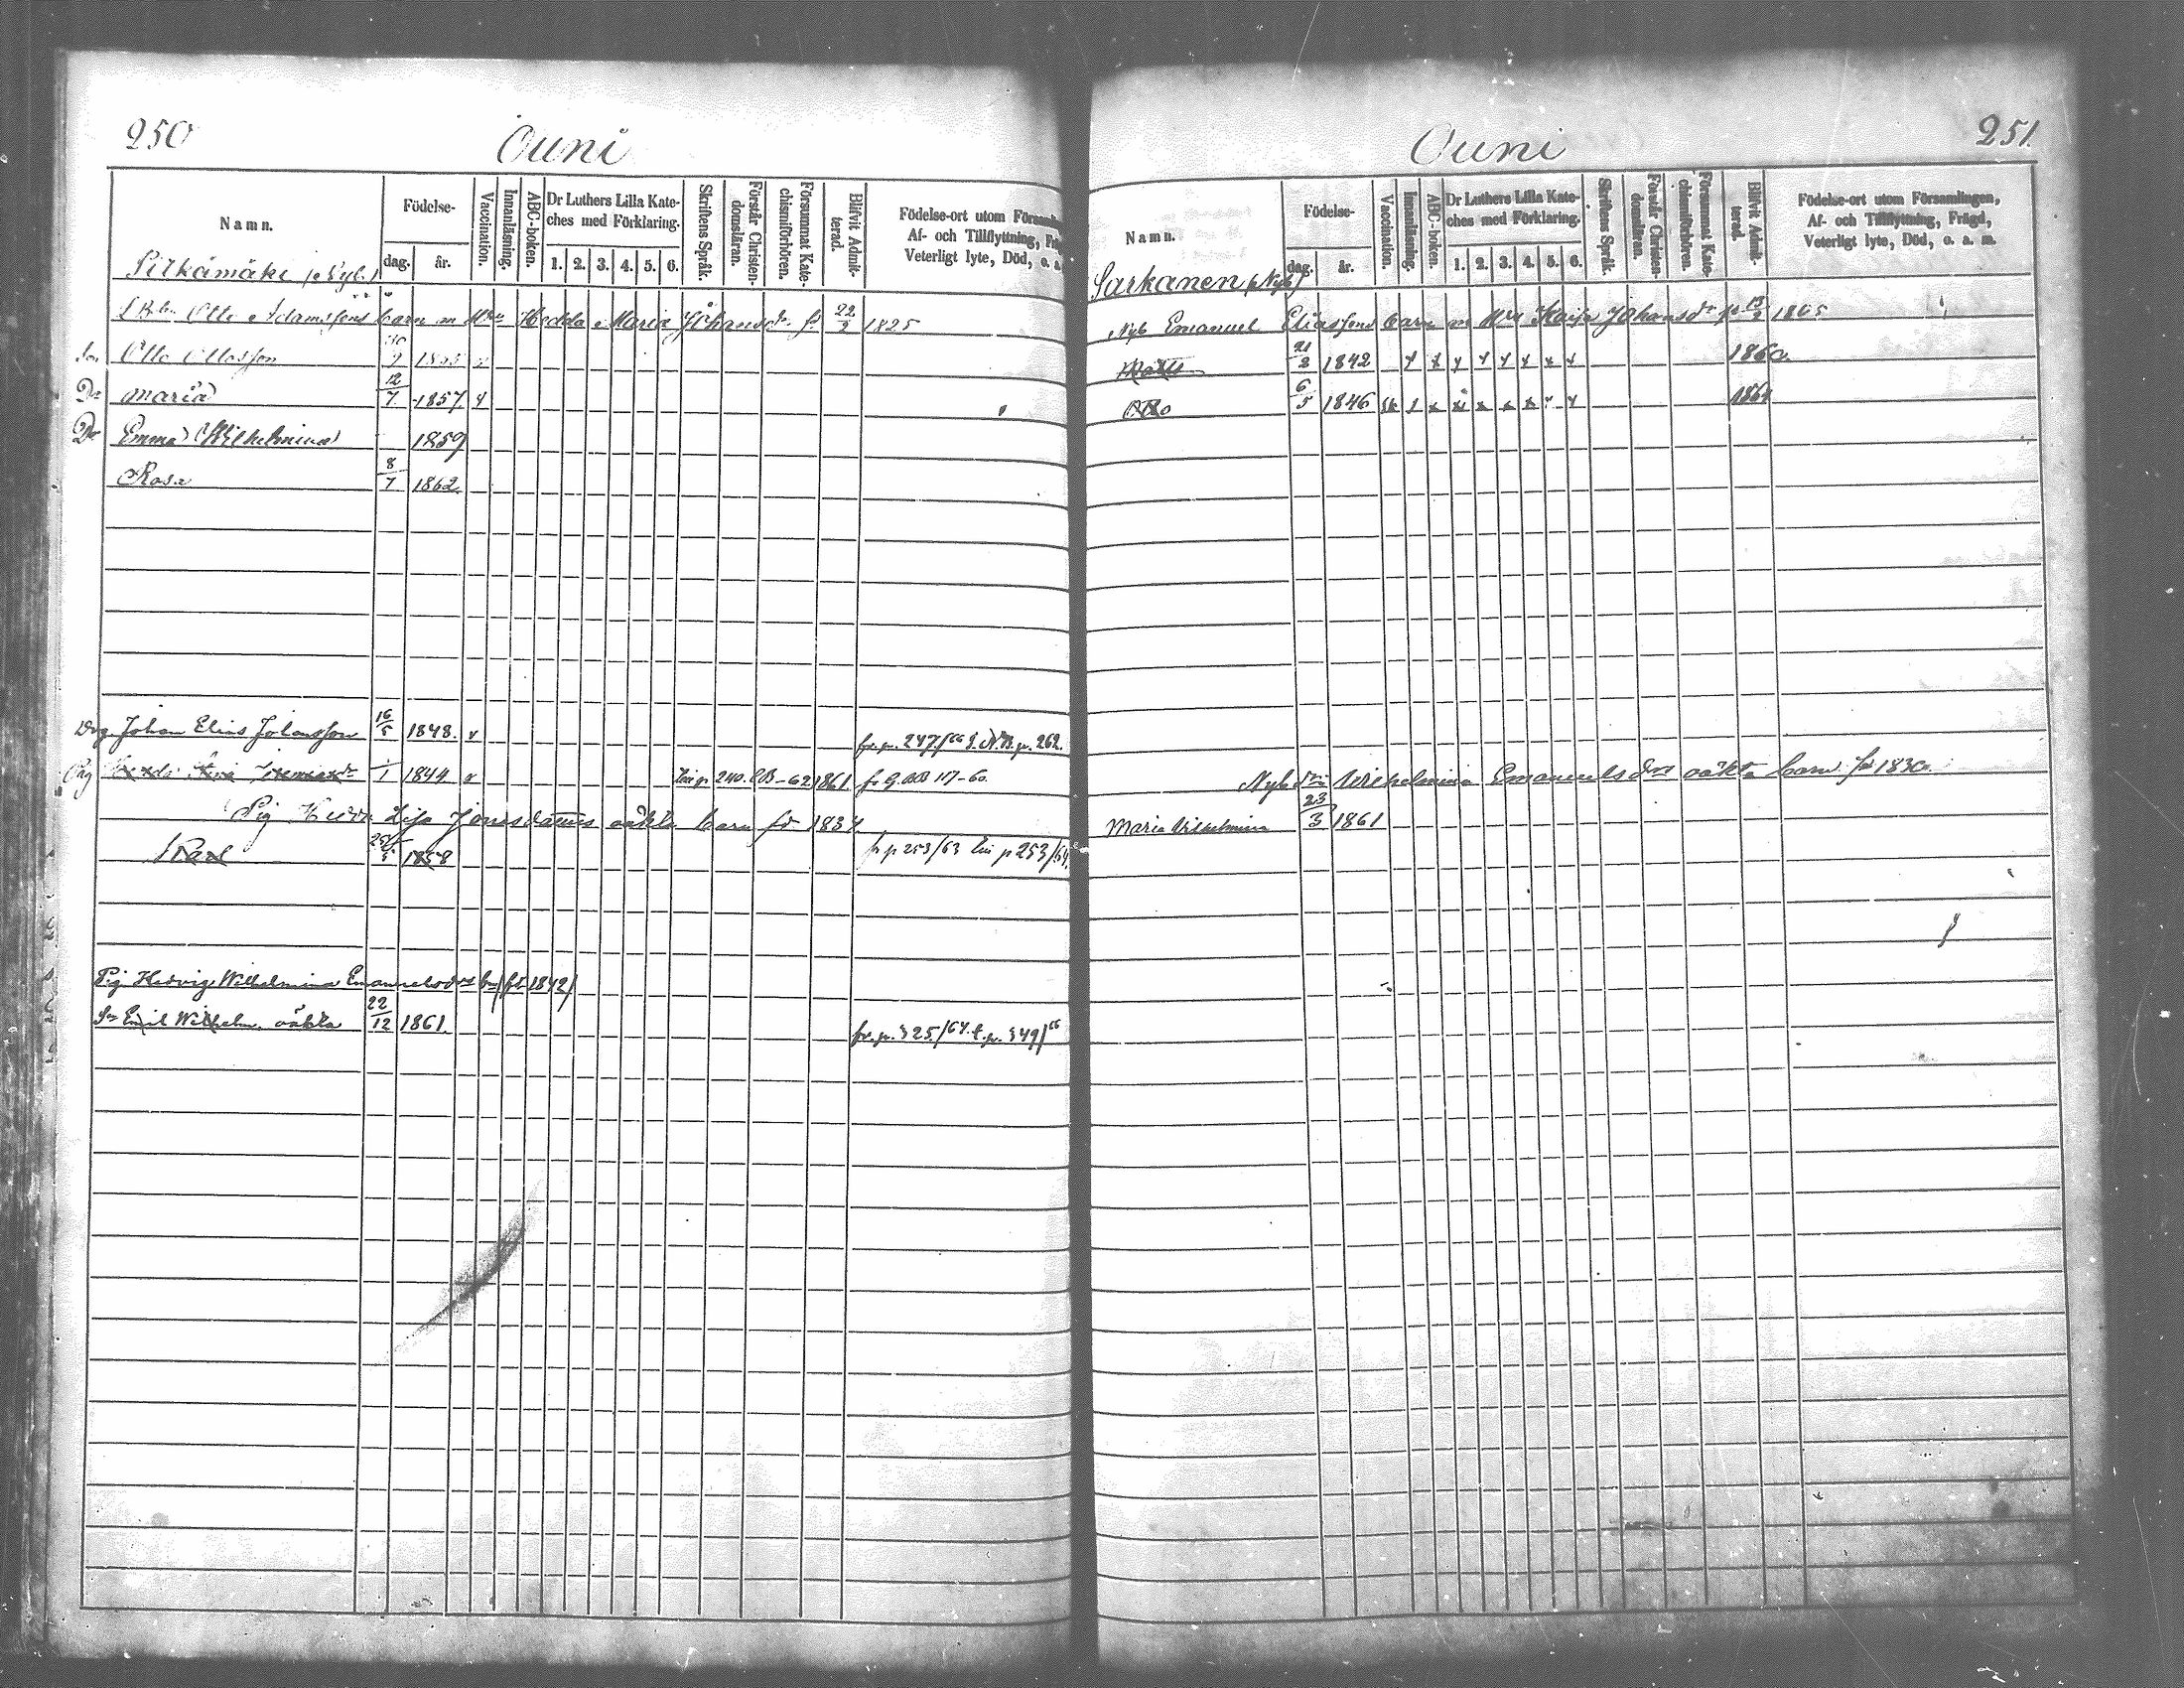 250
Ouni
Namn.
Födelse-
dag.
år.
Vaccination.
Innanläsning.
ABC-boken.
Dr Luthers Lilla Kate-
ches med Förklaring.
1. 2. 3. 4. 5. 6.
Skriftens Språk.
Förstår Christen-
domsläran.
Försummat Kate-
chismiförhören.
Blifvit Admit-
terad.
Födelse-ort utom Församli
Af- och Tillflyttning,
Veterligt lyte, Död, o. a.
Pitkämäki (Nyb.)
Otto Adamssons barn m Hedda Maria Johansdr fd 22/2 1825
Son Otto Ottosson
Dr Maria 12/7 1857 x
Dr Emma Wilhelmina 1859
Rosa 8/7 1862
Drg. Johan Elias Johansson 16/5 1848. x fr. p. 247/66 t. N.B. p. 262.
Pig 1844 x p 240. CB-62 1861. fr G. BB 117-60.
Pig Lisa Jonasdatters oäkta barn fd 1834
Karl 1858 fr p 253/63 p 253/64
Pig Hedvig Wilhelmina Emanuelsdrs bn (fd 1842)
Sn Emil Wilhelm, oäkta 22/12 1861. fr. p. 325/64. t. p. 349/66
251.
Ouni
Namn.
Födelse-
dag.
år.
Vaccination.
Innanläsning.
ABC-boken.
Dr Luthers Lilla Kate-
ches med Förklaring.
1. 2. 3. 4. 5. 6.
Skriftens Språk.
Förstår Christen-
domsläran.
Försummat Kate-
chismiförhören.
Blifvit Admit-
terad.
Födelse-ort utom Församlingen,
Af- och Tillflyttning, Frägd,
Veterligt lyte, Död, o. a. m.
Sarkanen (Nyb)
Nyb Emanuel Eliassons barn m Kaisa Johansdr
Matts 21/2 1842 x x x x x x x x 1860.
Otto 6/5 1846 x x x x x x x 1864
Nyb Wilhelmina Emanuelsdrs oäkta barn fd 1830.
Maria Vilhelmina 23/3 1861